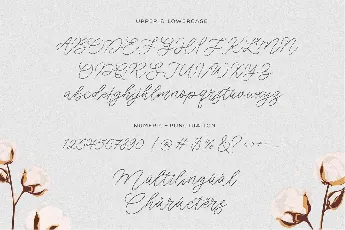 UPPER & LOWERCASE
ABCDEFGHIJKLMN
OPQRSTUVWXYZ
abcdefghijklmnopqrstuvwxyz
NUMERIC & PUNCTUATION
1234567890 ! @ # $ % & ?
Multilingual
Characters